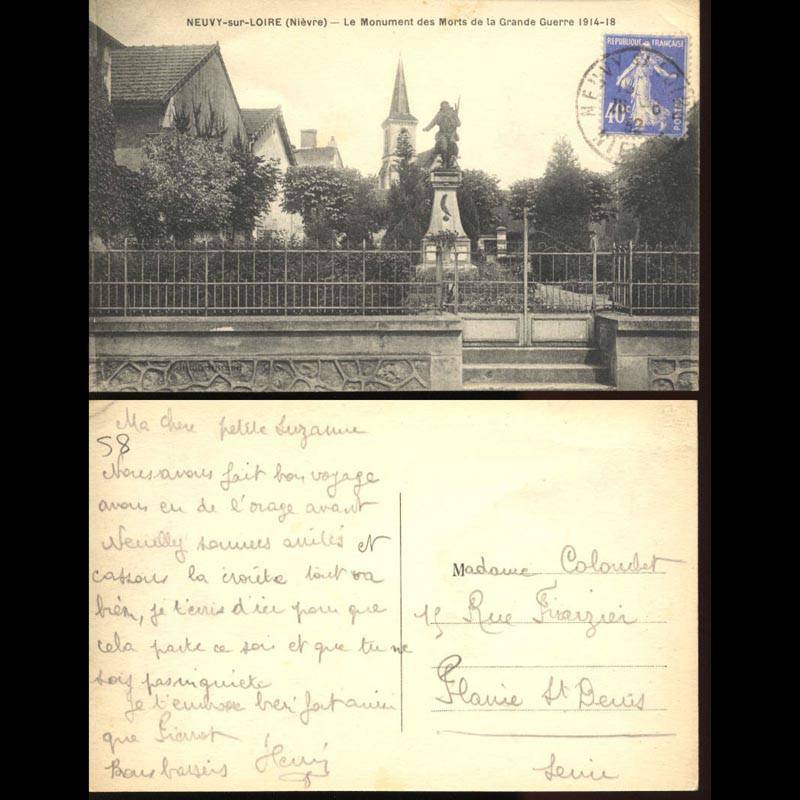 NEUVY-sur-LOIRE (Nièvre) — Le Monument des Morts de la Grande Guerre 1914-18
REPUBLIQUE FRANÇAISE
40c
POSTES
NEUVY
Ma chere petite Suzanne
58
Nous avons fait bon voyage
avons eu de l'orage avant
Neuilly sommes arrêtés et
cassons la croûte tout va
bien, je t'écris d'ici pour que
cela parte ce soir et que tu ne
sois pas inquiete
Je t'embrasse bien fort ainsi
que Pierrot
Bons baisers Henri
Madame Coloudet
15 Rue
Plaine St Denis
Seine